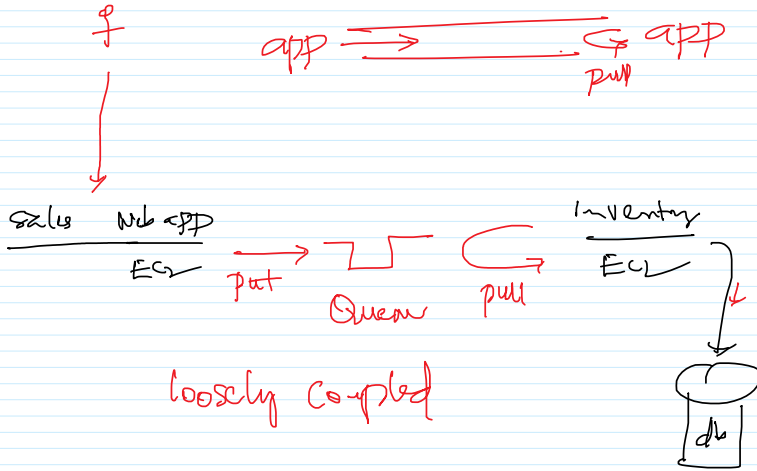 app app
pull
Sales Web app
EC2
put
Queue
pull
Inventory
EC2
loosely coupled
db